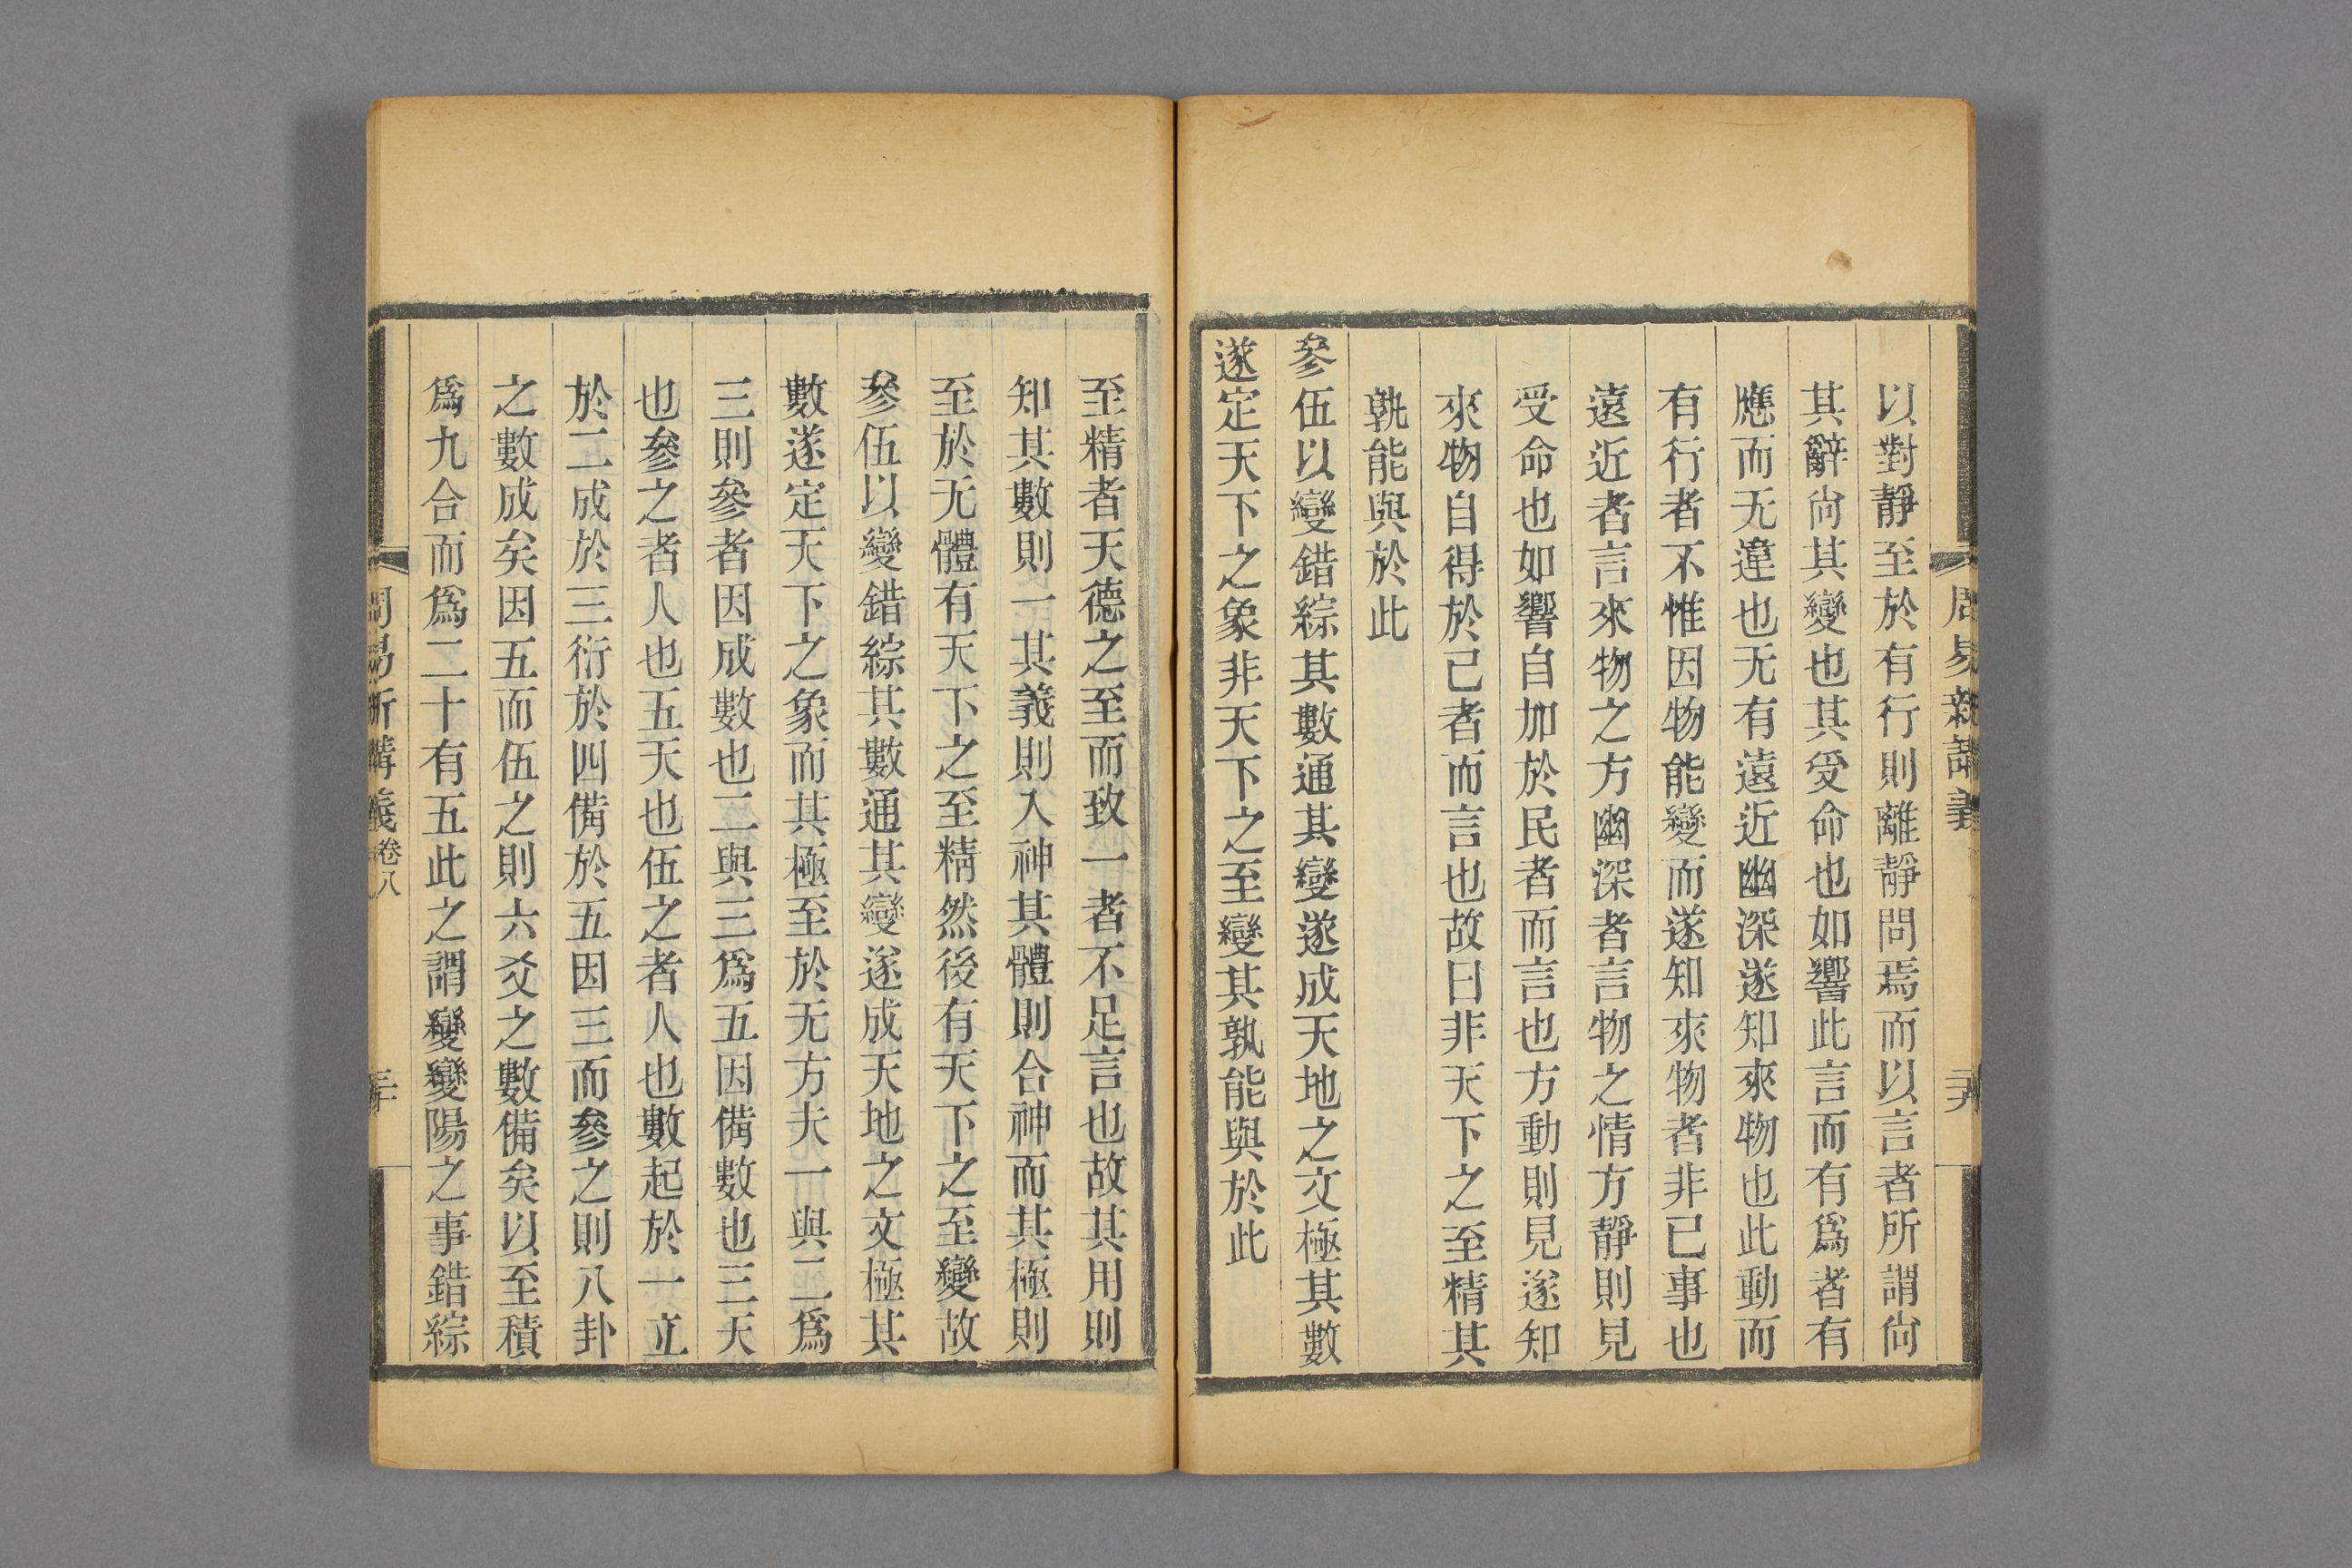 周易新講義
以對靜至於有行則離靜問焉而以言者所謂尙
其辭尙其變也其受命也如響此言而有爲者有
應而无違也无有遠近幽深遂知來物也此動而
有行者不惟因物能變而遂知來物者非已事也
遠近者言來物之方幽深者言物之情方靜則見
受命也如響自加於民者而言也方動則見遂知
來物自得於己者而言也故曰非天下之至精其
孰能與於此
參伍以變錯綜其數通其變遂成天地之文極其數
遂定天下之象非天下之至變其孰能與於此
至精者天德之至而致一者不足言也故其用則
知其數則一其義則入神其體則合神而其極則
至於无體有天下之至精然後有天下之至變故
參伍以變錯綜其數通其變遂成天地之文極其
數遂定天下之象而其極至於无方夫一與二爲
三則參者因成數也二與三爲五因備數也三天
也參之者人也五天也伍之者人也數起於一立
於二成於三衍於四備於五因三而參之則八卦
之數成矣因五而伍之則六爻之數備矣以至積
爲九合而爲二十有五此之謂變變陽之事錯綜
周易新講義 卷八